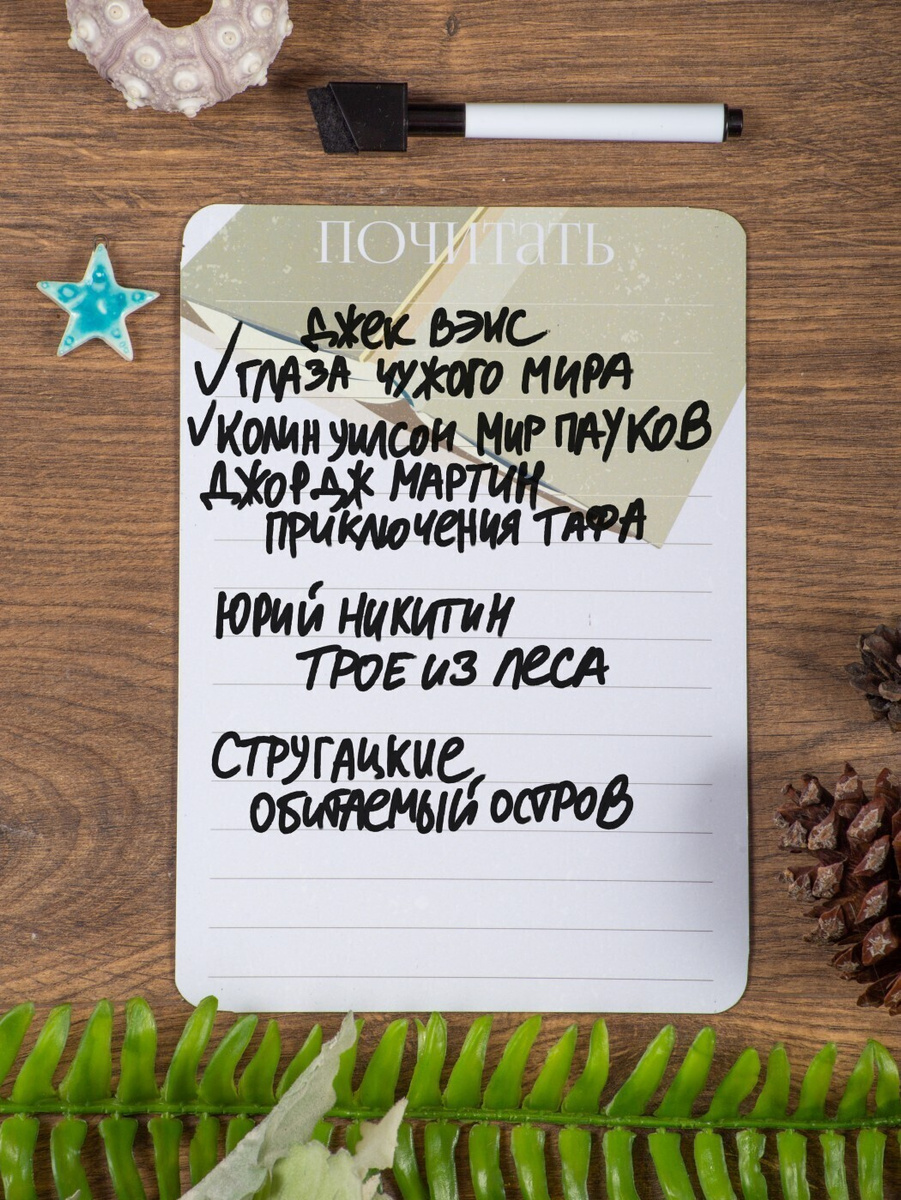 ПОЧИТАТЬ
ДЖЕК ВЭНС
✓ ГЛАЗА ЧУЖОГО МИРА
✓ КОЛИН УИЛСОН МИР ПАУКОВ
ДЖОРДЖ МАРТИН
ПРИКЛЮЧЕНИЯ ТАФА
ЮРИЙ НИКИТИН
ТРОЕ ИЗ ЛЕСА
СТРУГАЦКИЕ
ОБИТАЕМЫЙ ОСТРОВ